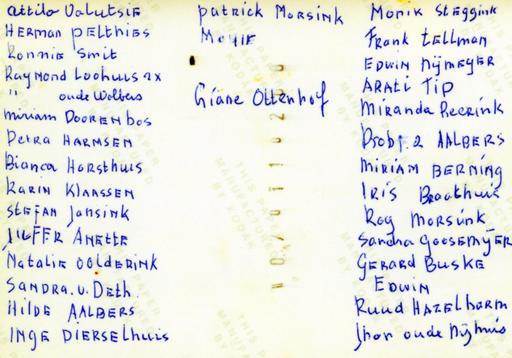 Attila Valutsie
Herman Pelthies
Ronnie Smit
Raymond Loohuis 2x
" oude Wolbers
Miriam Doorenbos
Petra Harmsen
Bianca Horsthuis
Karin Klaassen
Stefan Jansink
Juffr Anette
Natalie Oolderink
Sandra v. Deth
Hilde Aalbers
Inge Dierselhuis
Patrick Morsink
Giane Ottenhof
Monik Steggink
Frank Tellman
Edwin Nijmeyer
Arati Tip
Miranda Reerink
Robj. 2 Aalbers
Miriam Berning
Iris Braakhuis
Roy Morsink
Sandra Goosemÿer
Gerard Buske
Edwin
Ruud Hazelhorm
oude Nijhuis
THIS PAPER
MANUFACTURED
BY KODAK